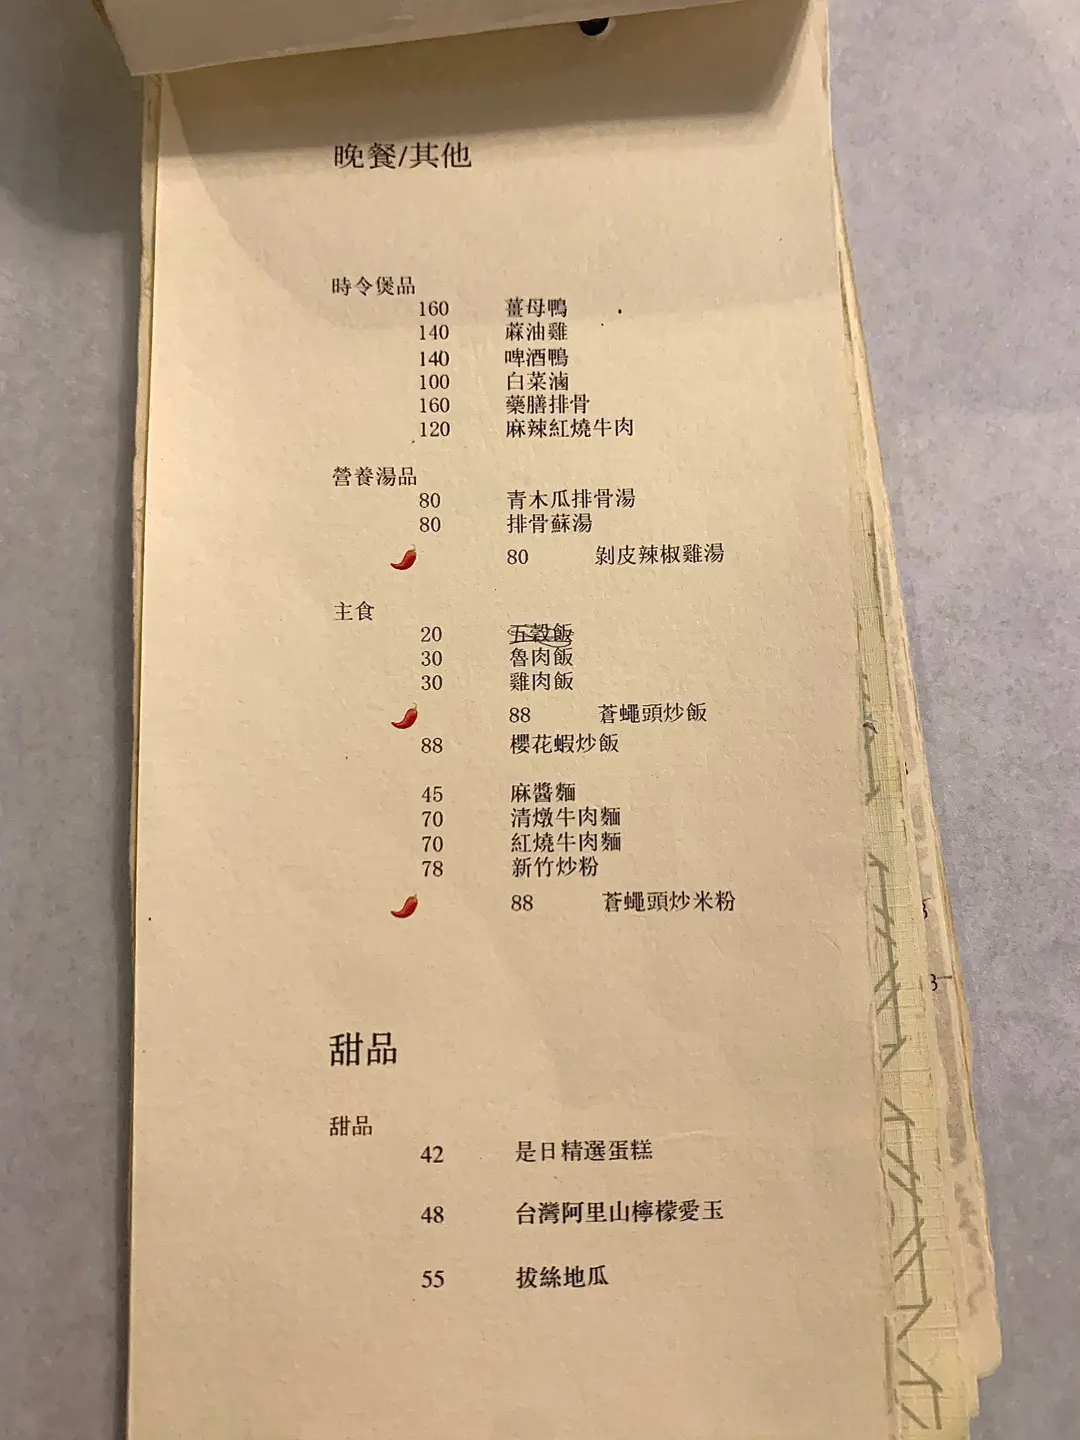 晚餐/其他
時令煲品
160 薑母鴨
140 蔴油雞
140 啤酒鴨
100 白菜滷
160 藥膳排骨
120 麻辣紅燒牛肉
營養湯品
80 青木瓜排骨湯
80 排骨蘇湯
80 剝皮辣椒雞湯
主食
20 五穀飯
30 魯肉飯
30 雞肉飯
88 蒼蠅頭炒飯
88 櫻花蝦炒飯
45 麻醬麵
70 清燉牛肉麵
70 紅燒牛肉麵
78 新竹炒粉
88 蒼蠅頭炒米粉
甜品
甜品
42 是日精選蛋糕
48 台灣阿里山檸檬愛玉
55 拔絲地瓜